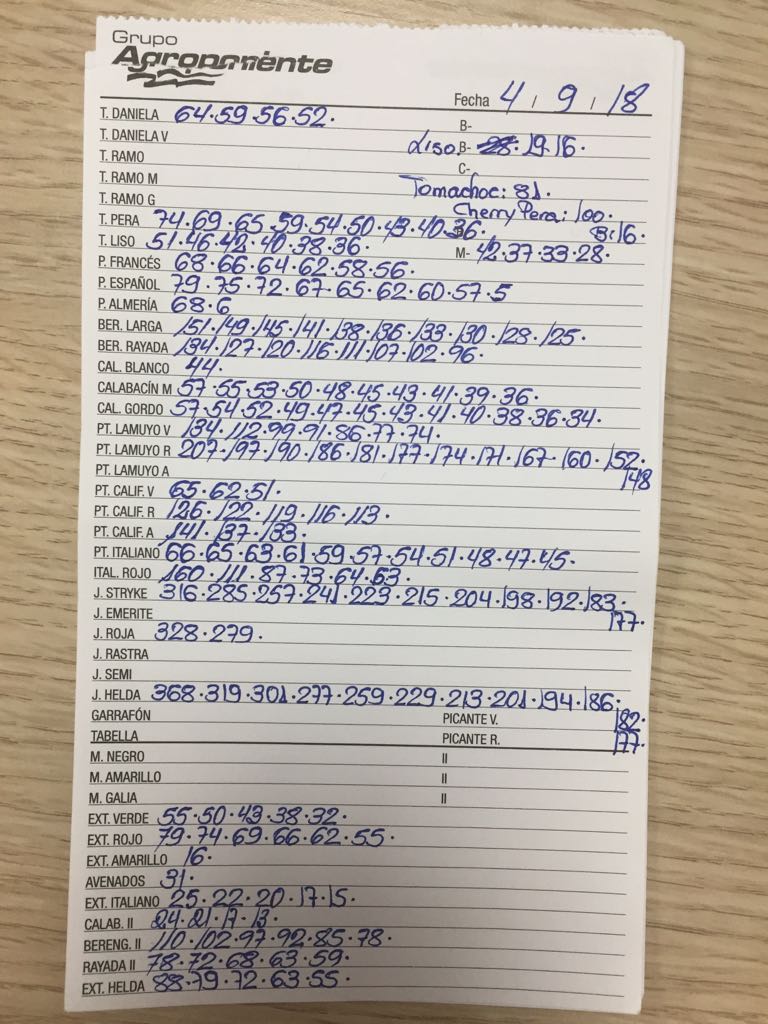 Grupo
Agroponiente
Fecha 4 / 9 / 18
T. DANIELA 64.59.56.52.
B-
T. DANIELA V
Liso B- 19.16.
T. RAMO
C-
T. RAMO M
Tomachoc: 81.
T. RAMO G
Cherry Pera: 100.
T. PERA 74.69.65.59.54.50.43.40.36.
B:16.
T. LISO 51.46.42.40.38.36.
M- 42.37.33.28.
P. FRANCÉS 68.66.64.62.58.56.
P. ESPAÑOL 79.75.72.67.65.62.60.57.5
P. ALMERÍA 68.6
BER. LARGA 151.149.145.141.138.136.133.130.128.125.
BER. RAYADA 134.127.120.116.111.107.102.96.
CAL. BLANCO 44.
CALABACÍN M 57.55.53.50.48.45.43.41.39.36.
CAL. GORDO 57.54.52.49.47.45.43.41.40.38.36.34.
PT. LAMUYO V 134.112.99.91.86.77.74.
PT. LAMUYO R 207.197.190.186.181.177.174.171.167.160.152.
148
PT. LAMUYO A
PT. CALIF. V 65.62.51.
PT. CALIF. R 126.122.119.116.113.
PT. CALIF. A 141.137.133.
PT. ITALIANO 66.65.63.61.59.57.54.51.48.47.45.
ITAL. ROJO 160.111.87.73.64.63.
J. STRYKE 316.285.257.241.223.215.204.198.192.183.
177.
J. EMERITE
J. ROJA 328.279.
J. RASTRA
J. SEMI
J. HELDA 368.319.301.277.259.229.213.201.194.186.
182.
177.
GARRAFÓN PICANTE V.
TABELLA PICANTE R.
M. NEGRO II
M. AMARILLO II
M. GALIA II
EXT. VERDE 55.50.43.38.32.
EXT. ROJO 79.74.69.66.62.55.
EXT. AMARILLO 16.
AVENADOS 31.
EXT. ITALIANO 25.22.20.17.15.
CALAB. II 24.21.17.13.
BERENG. II 110.102.97.92.85.78.
RAYADA II 78.72.68.63.59.
EXT. HELDA 88.79.72.63.55.